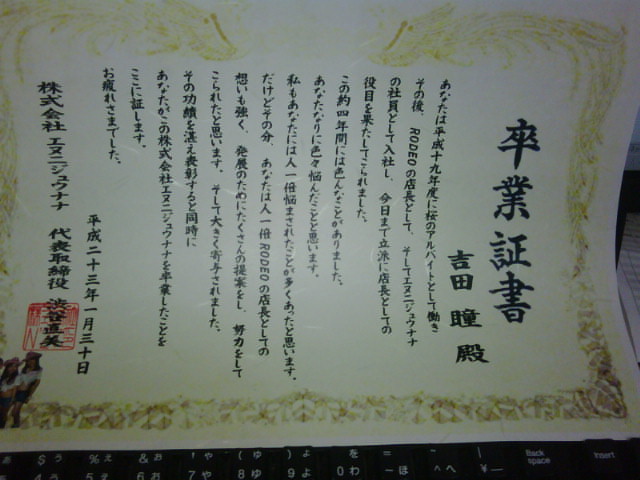 卒業証書
吉田 瞳 殿
あなたは平成十九年度に桜のアルバイトとして働き
その後、RODEOの店長として、そしてエヌニジュウナナ
の社員として入社し、今日まで立派に店長としての
役目を果たしてこられました。
この約四年間には色んなことがありました。
あなたなりに色々悩んだことと思います。
私もあなたには人一倍悩まされたことが多くあったと思います。
だけどその分、あなたは人一倍RODEOの店長としての
想いも強く、発展のためにたくさんの提案をし、努力をして
こられたと思います。そして大きく寄与されました。
その功績を湛え表彰すると同時に
あなたがこの株式会社エヌニジュウナナを卒業したことを
ここに証します。
お疲れさまでした。
平成二十三年一月三十日
株式会社 エヌニジュウナナ 代表取締役 渋谷直美
$ う 4 う
% え 5 え
& お 6 お
' や 7 や
( ゆ 8 ゆ
) よ 9 よ
を 0 わ
= - ほ
~ ^ へ
| ¥ ー
Back space
Insert